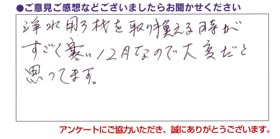 ●ご意見ご感想などございましたらお聞かせください
浄水用の機を取り換える時が
すごく寒い12月なので大変だと
思ってます。
アンケートにご協力いただき、誠にありがとうございます。